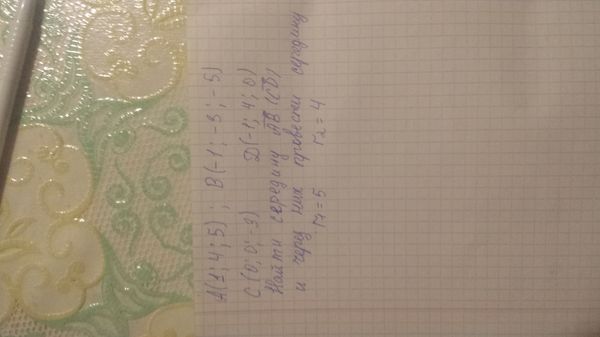 A(1; 4; 5) ; B(-1; -3; -5)
C(0; 0; -3) D(-1; 4; 0)
Найти середину AB (CD)
и через них провести середину
r1 = 5 r2 = 4